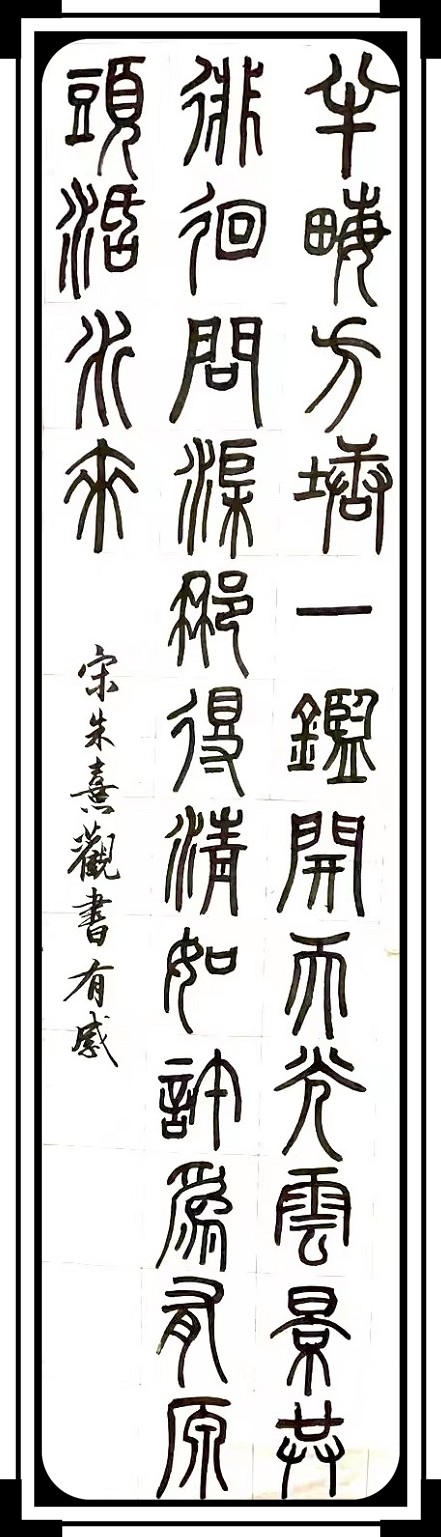 半畮方塘一鑑開天光雲景共
徘徊問渠那得清如許爲有原
頭活水來
宋朱熹觀書有感